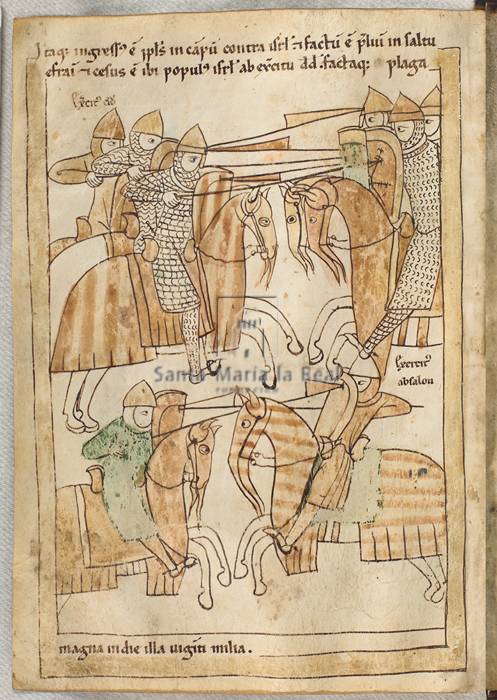 Itaq; ingressꝰ ē ppls̄ in cāpū contra isrł ⁊ factū ē p̄liū in saltu
efraī ⁊ cesus ē ibi populꝰ isrł ab exercitu dd factaq; plaga
Exercitꝰ dd
Exercitꝰ
absalon
Santa María la Real
magna in die illa uiginti milia.